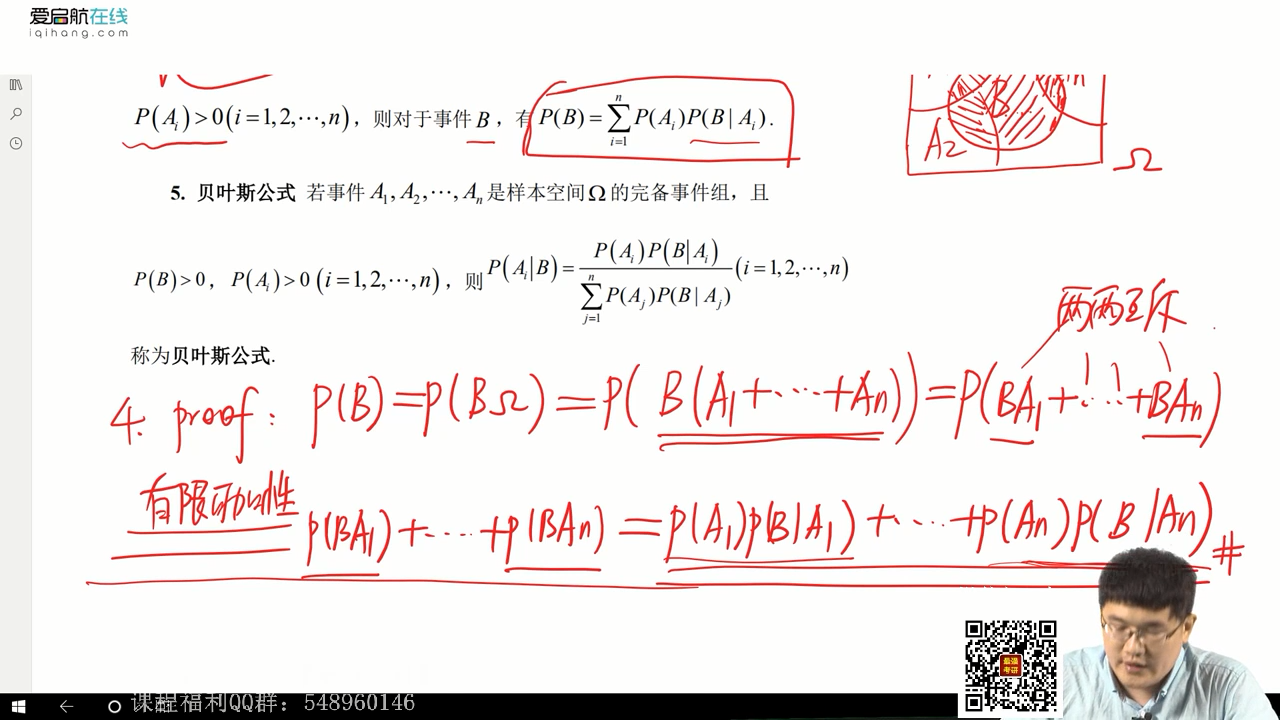 爱启航在线
iqihang.com
P(A_i)>0(i=1,2,⋯,n)，则对于事件B，有P(B)=∑_{i=1}^{n}P(A_i)P(B|A_i).
B
A2
Ω
5. 贝叶斯公式 若事件A_1,A_2,⋯,A_n是样本空间Ω的完备事件组，且
P(B)>0，P(A_i)>0(i=1,2,⋯,n)，则P(A_i|B)=\frac{P(A_i)P(B|A_i)}{∑_{j=1}^{n}P(A_j)P(B|A_j)}(i=1,2,⋯,n)
两两互斥
称为贝叶斯公式.
4. proof: P(B)=P(BΩ)=P(B(A1+⋯+An))=P(BA1+⋯+BAn)
有限可加性 P(BA1)+⋯+P(BAn)=P(A1)P(B|A1)+⋯+P(An)P(B|An) #
最强考研
课程福利QQ群：548960146